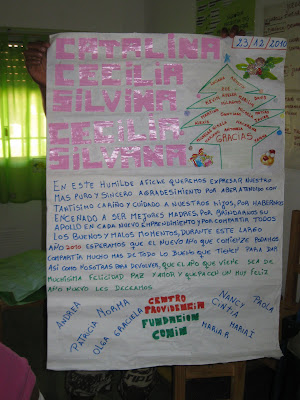 CATALINA
CECILIA
SILVINA
CECILIA
SILVANA
23/12/2010
GRACIAS
EN ESTE HUMILDE AFICHE QUEREMOS EXPRESAR NUESTRO
MAS PURO Y SINCERO AGRADESIMIENTO POR ABER ATENDIDO CON
TANTISIMO CARIÑO Y CUIDADO A NUESTROS HIJOS, POR HABERNOS
ENCEÑADO A SER MEJORES MADRES, POR BRINDARNOS SU
APOLLO EN CADA NUEVO EMPRENDIMIENTO Y POR COMPARTIR TODOS
LOS BUENOS Y MALOS MOMENTOS, DURANTE ESTE LARGO
AÑO 2010 ESPERAMOS QUE EL NUEVO AÑO QUE COMIENZE PODAMOS
COMPARTIR MUCHO MAS DE TODO LO BUENO QUE TIENEN PARA DAR
ASI COMO NOSOTRAS PARA DEVOLVER, QUE EL AÑO QUE VIENE SEA DE
MUCHISIMA FELICIDAD PAZ Y AMOR Y QUE PACEN UN MUY FELIZ
AÑO NUEVO LES DECEAMOS
ANDREA
PATRICIA
NORMA
OLGA
GRACIELA
CENTRO
PROVIDENCIA
FUNDACION
CONIN
NANCY
CINTIA
PAOLA
MARIA R
MARIA S